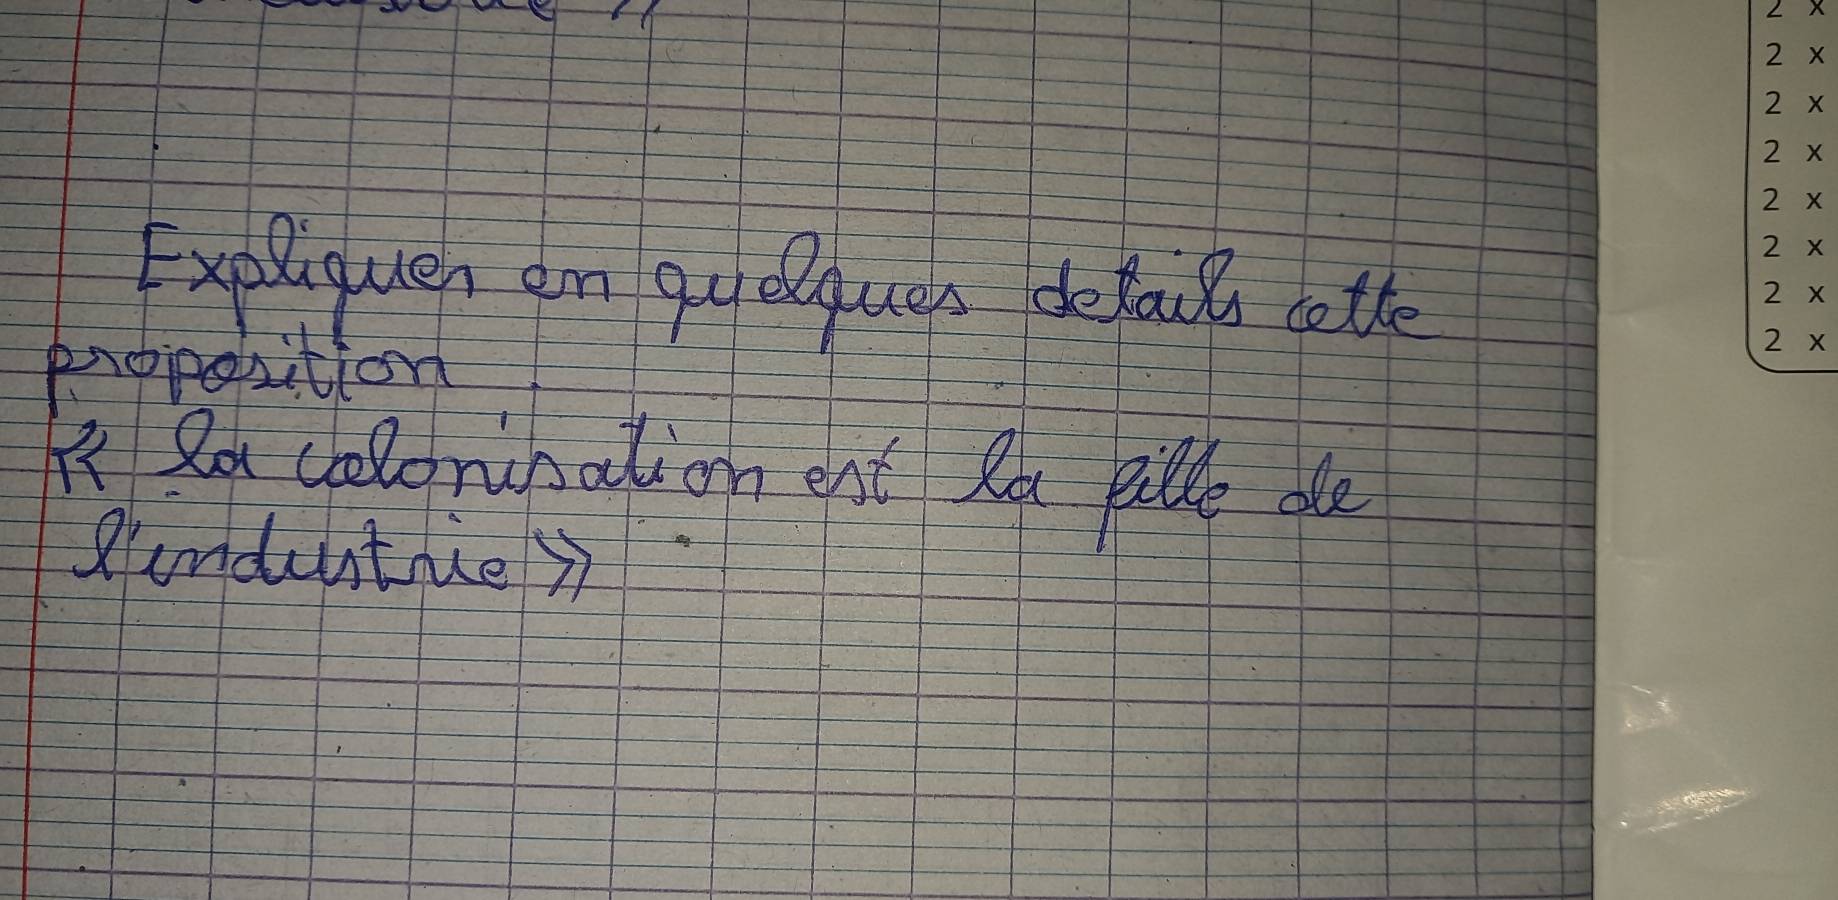 2 x
2 x
2 x
2 x
2 x
2 x
2 x
2 x
Expliquer en quelques details cette
proposition
« la colonisation est la fille de
l'industrie »